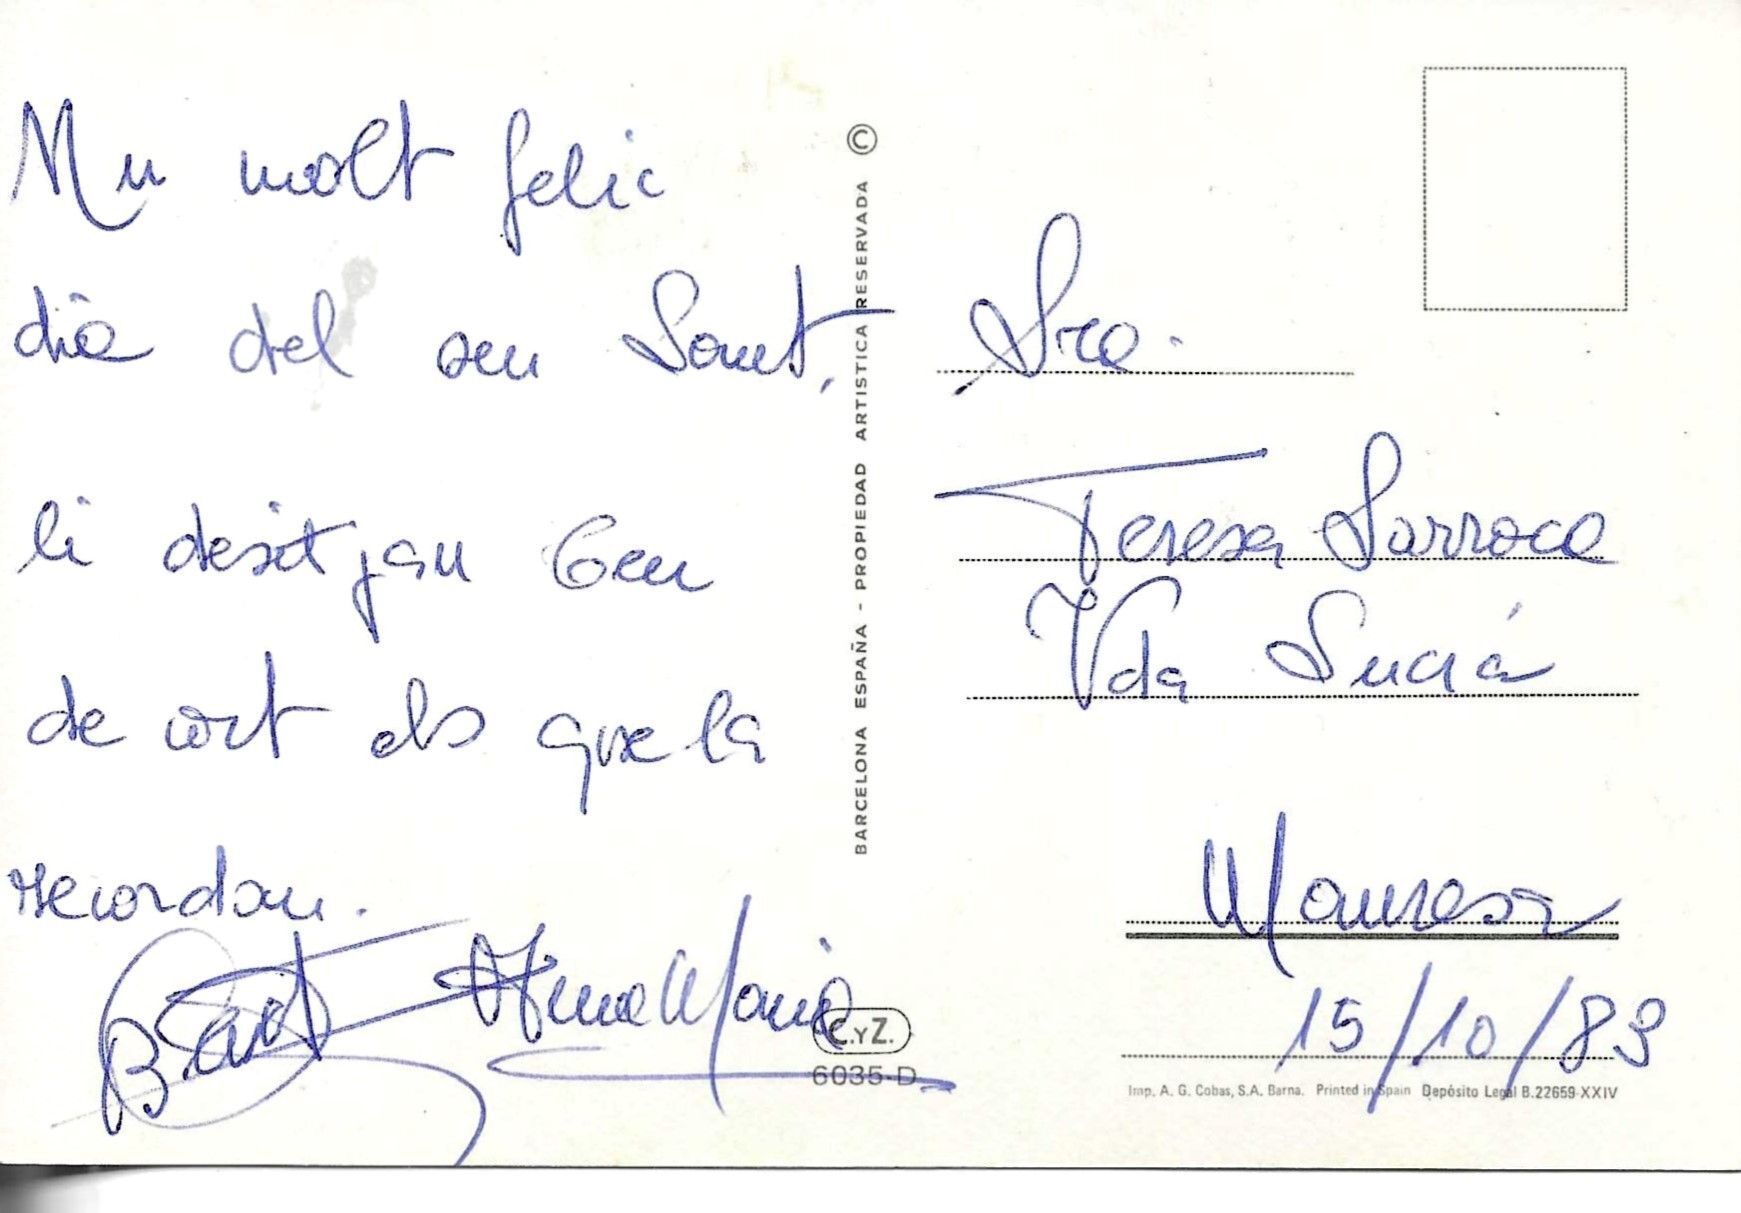 Un molt felic
dia del seu Sant,
li desitjan ben
de cort els que la
recordan.
Anna Maria
©
BARCELONA ESPAÑA - PROPIEDAD ARTISTICA RESERVADA
Sra.
Teresa Sarroca
Vda Suciá
Manresa
15/10/83
C.YZ.
6035-D
Imp. A. G. Cobas, S.A. Barna. Printed in Spain Depósito Legal B.22659-XXIV